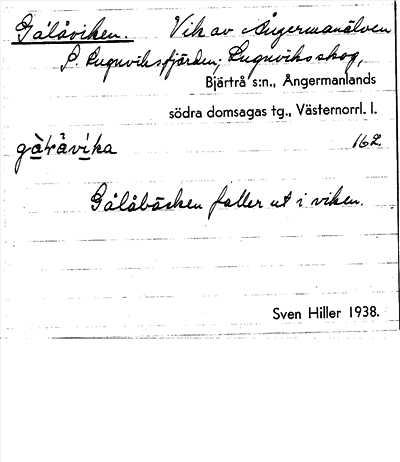 Gålåviken. Vik av Ångermanälven
S. Lugnviksfjärden; Lugnviksskog,
Bjärtrå s:n., Ångermanlands
södra domsagas tg., Västernorrl. l.
162
Gålåbäcken faller ut i viken.
Sven Hiller 1938.